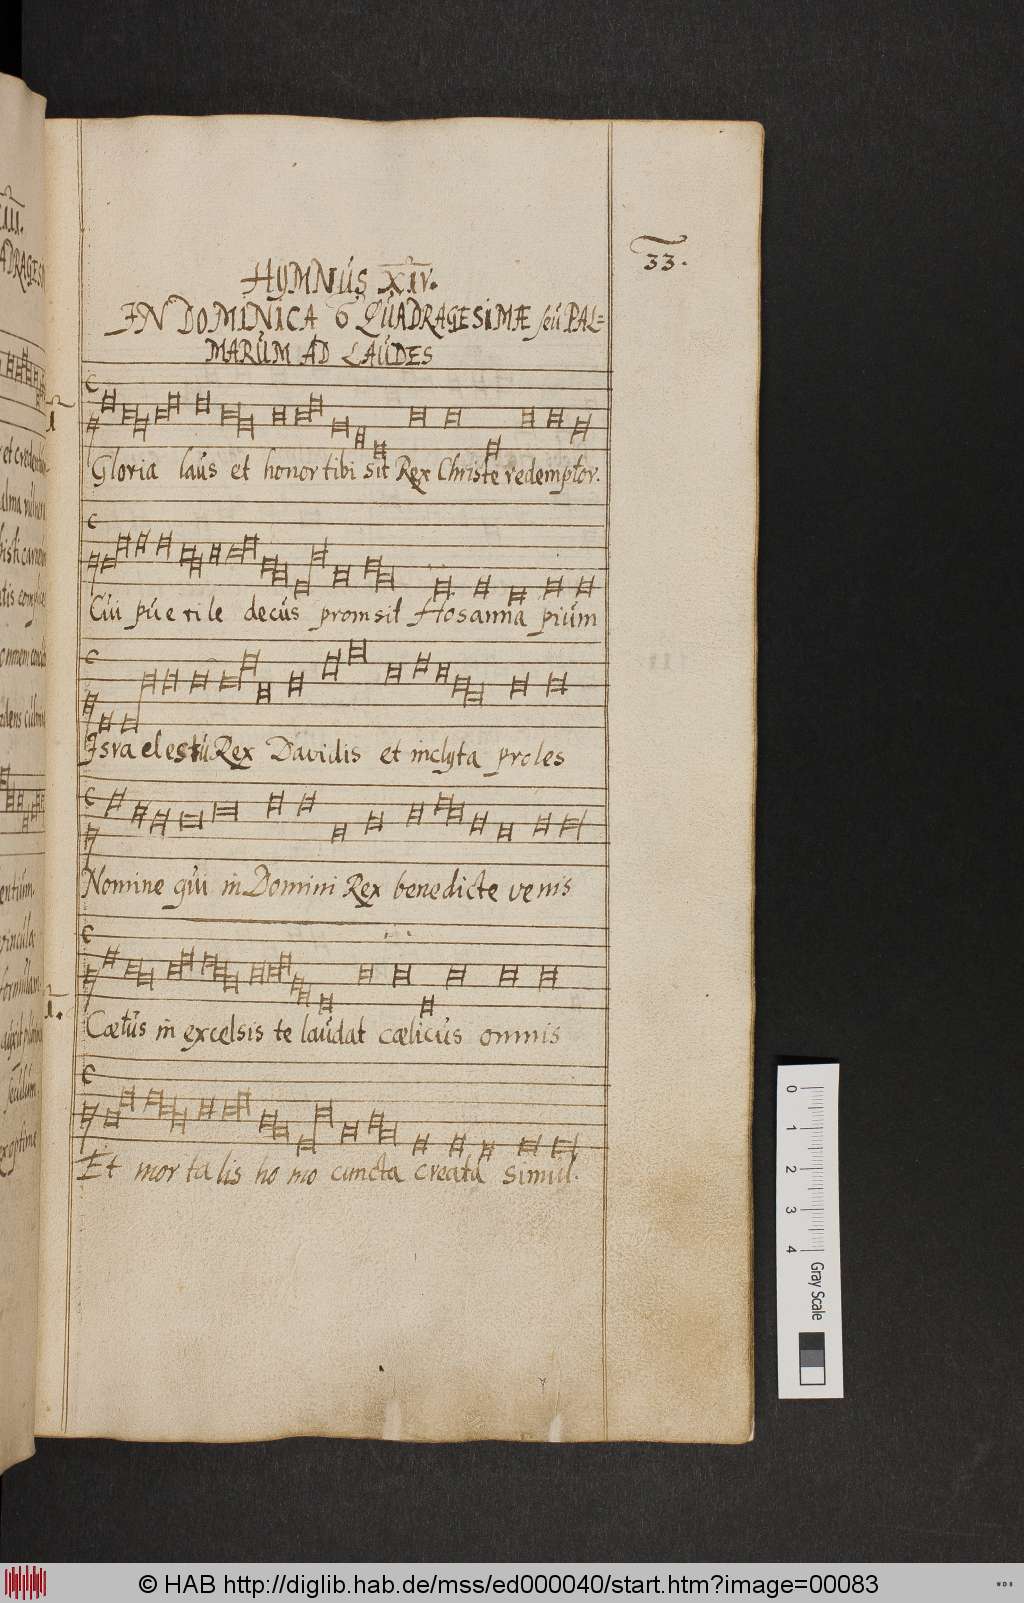 33.
HYMNUS XIV.
IN DOMINICA 6 QUADRAGESIMÆ seu PAL=
MARUM AD LAUDES
1
Gloria laus et honor tibi sit Rex Christe redemptor.
Cui puerile decus promsit Hosanna pium
Israel es tu Rex Davidis et inclyta proles
Nomine qui in Domini Rex benedicte venis
1.
Cætus in excelsis te laudat cælicus omnis
Et mortalis homo cuncta creata simul.
0 1 2 3 4 Gray Scale
© HAB http://diglib.hab.de/mss/ed000040/start.htm?image=00083